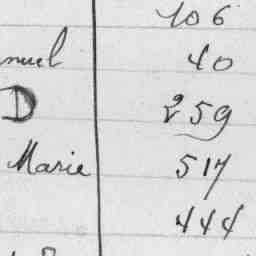 106
nuel 40
D 259
Marie 517
444